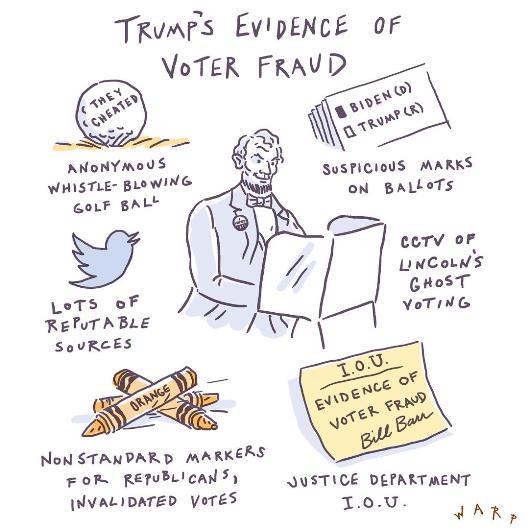 TRUMP'S EVIDENCE OF
VOTER FRAUD
THEY
CHEATED
ANONYMOUS
WHISTLE-BLOWING
GOLF BALL
BIDEN(D)
TRUMP(R)
SUSPICIOUS MARKS
ON BALLOTS
LOTS OF
REPUTABLE
SOURCES
CCTV OF
LINCOLN'S
GHOST
VOTING
ORANGE
NONSTANDARD MARKERS
FOR REPUBLICANS,
INVALIDATED VOTES
I.O.U.
EVIDENCE OF
VOTER FRAUD
Bill Barr
JUSTICE DEPARTMENT
I.O.U.
WARP